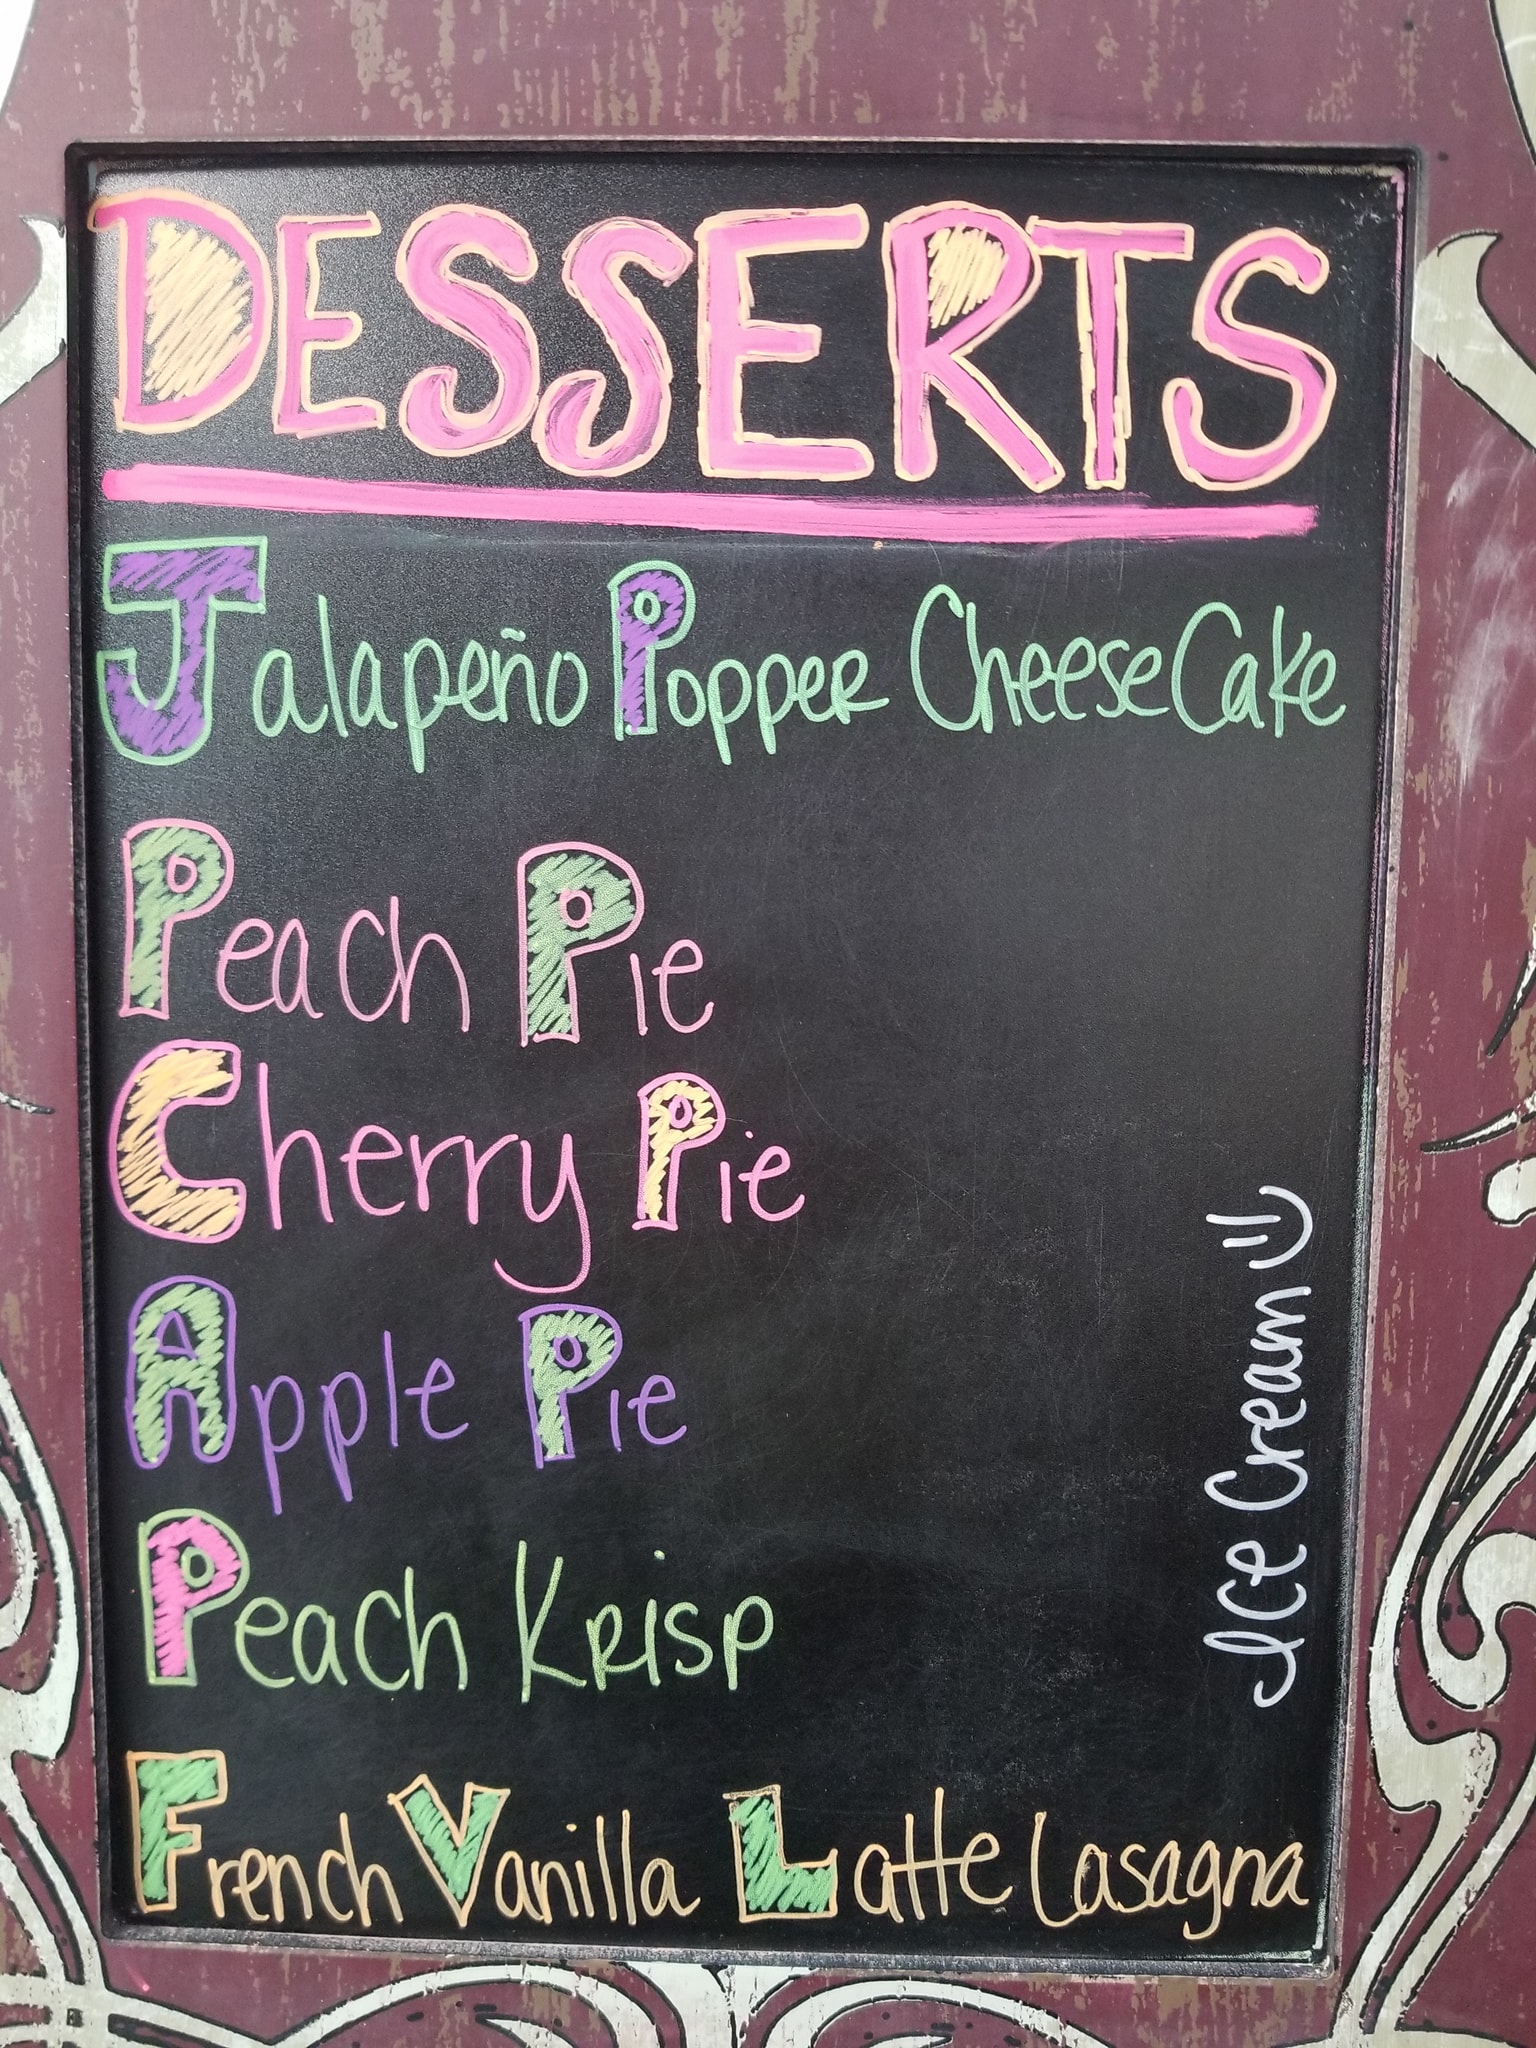 DESSERTS
Jalapeño Popper CheeseCake
Peach Pie
Cherry Pie
Apple Pie
Peach Krisp
French Vanilla Latte Lasagna
Ice Cream =)